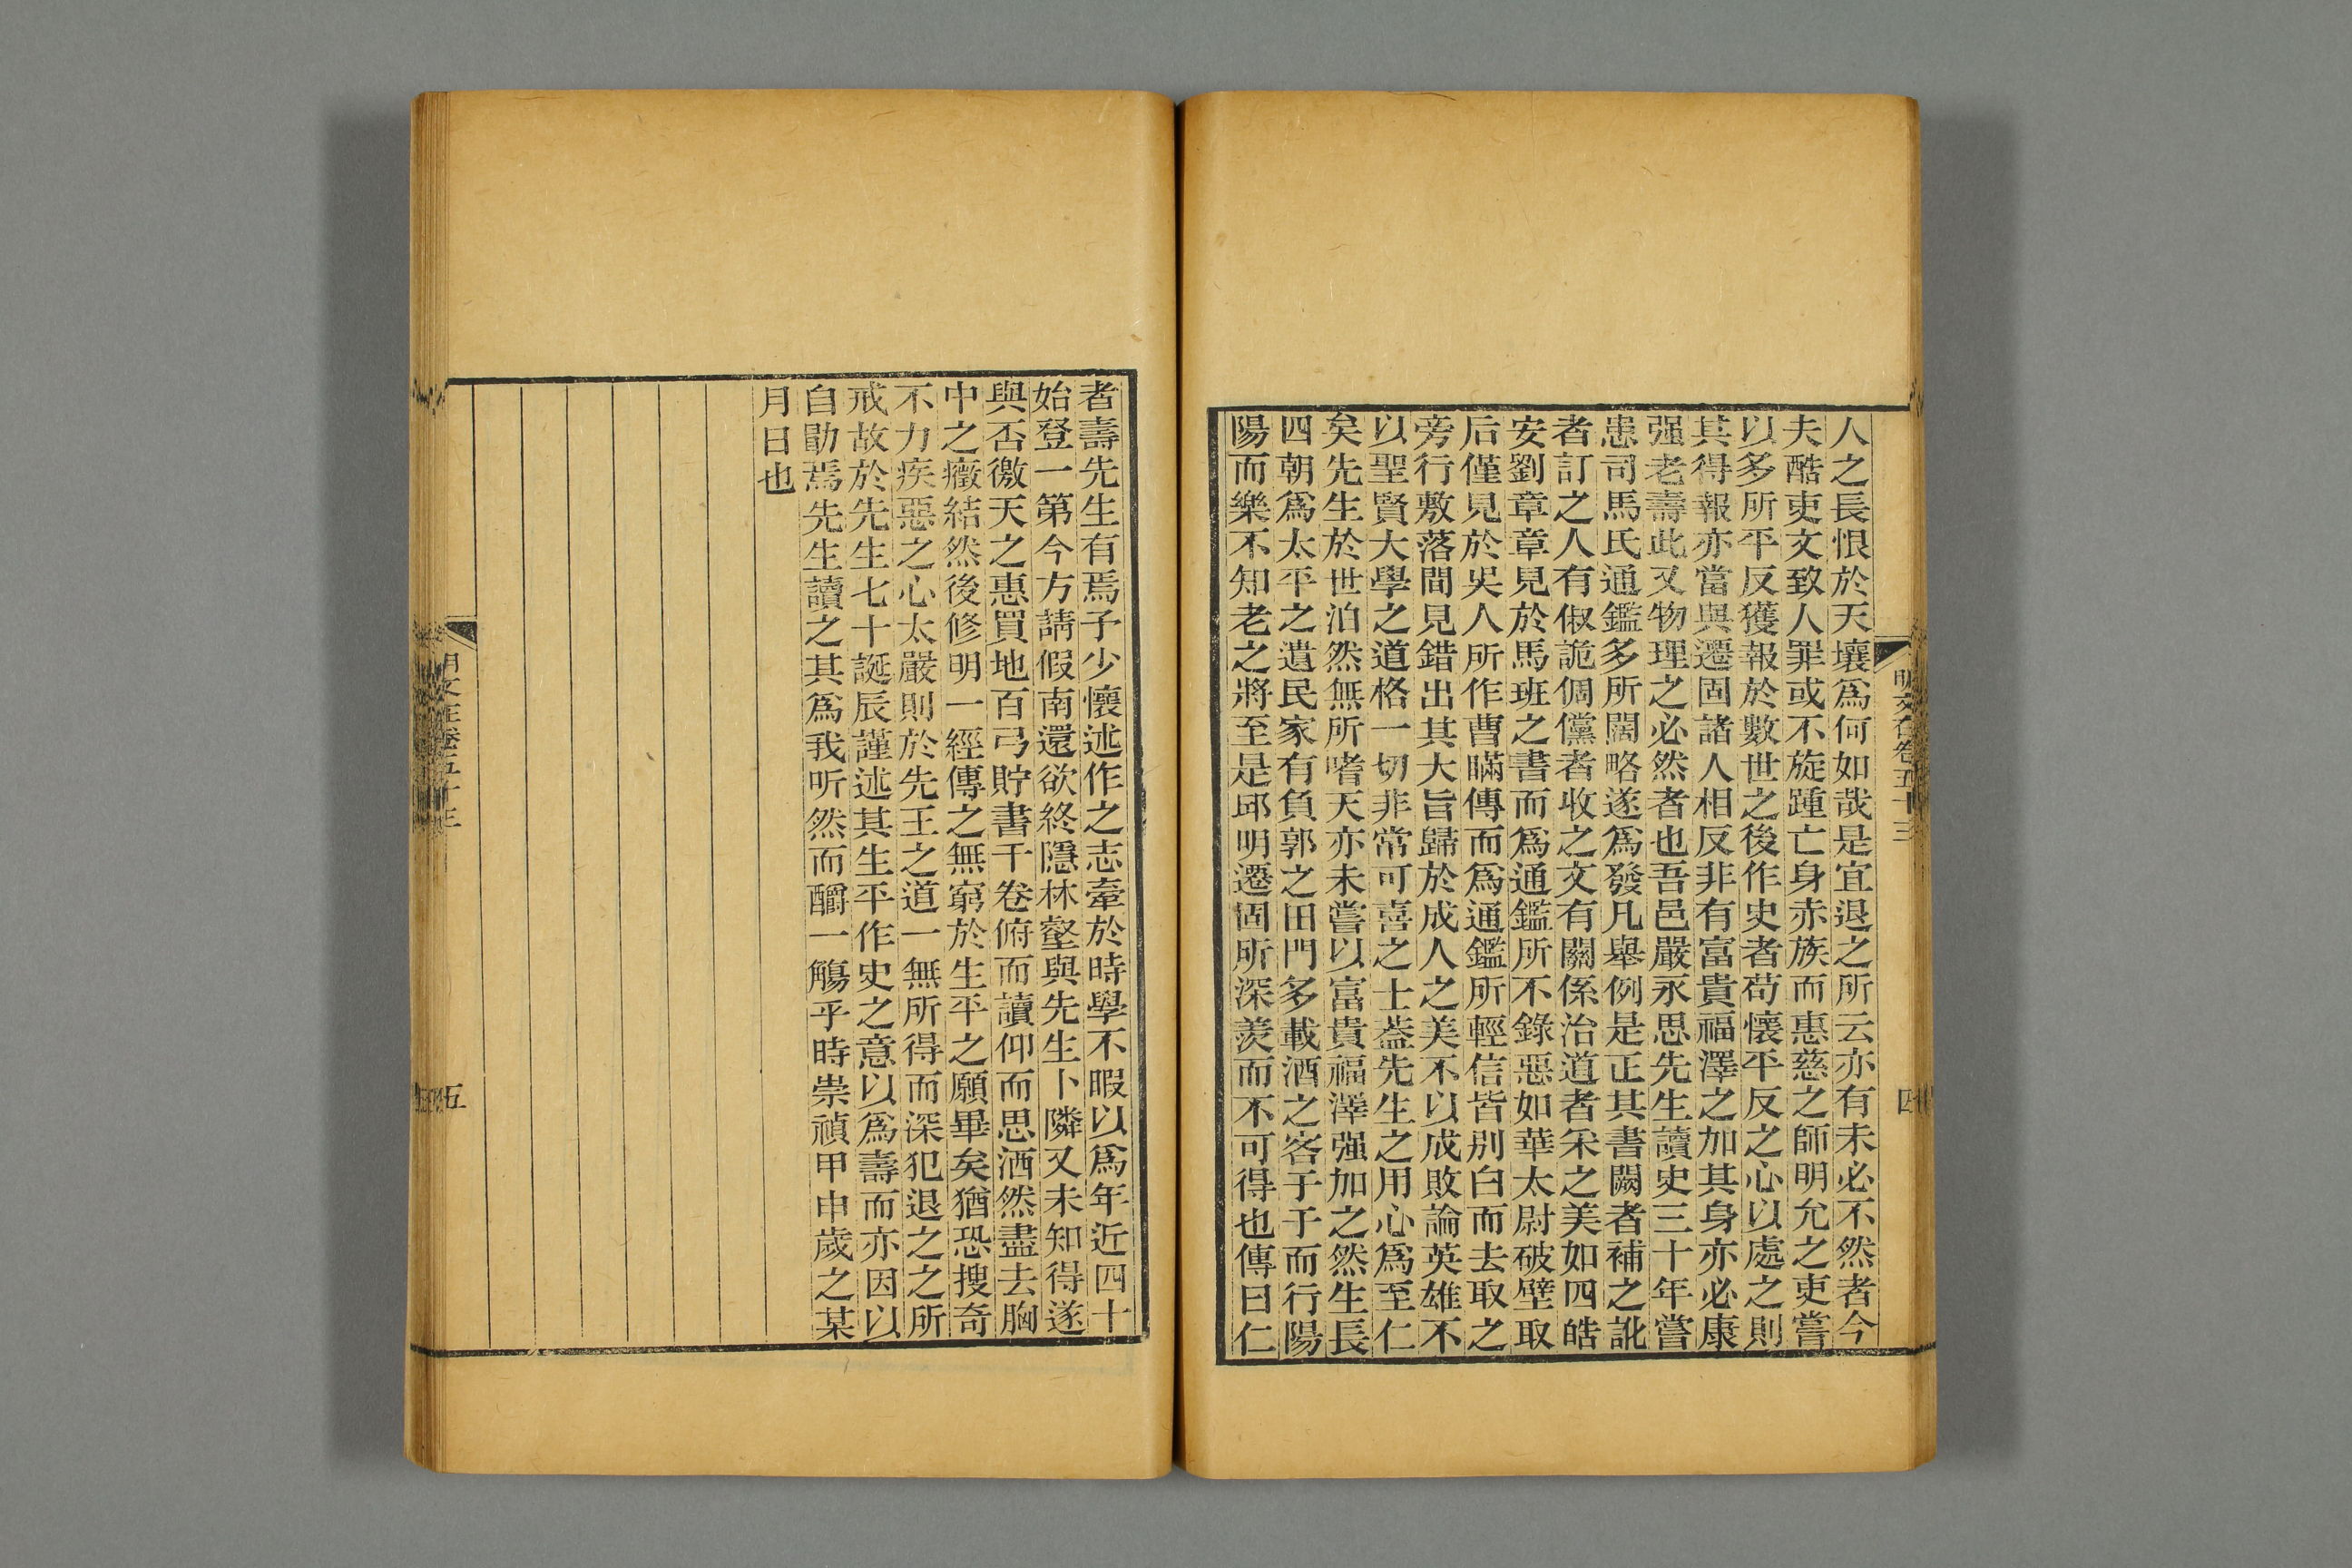 人之長恨於天壤爲何如哉是宜退之所云亦有未必不然者今
夫酷吏文致人罪或不旋踵亡身赤族而惠慈之師明允之吏嘗
以多所平反獲報於數世之後作史者苟懷平反之心以處之則
其得報亦當與遷固諸人相反非有富貴福澤之加其身亦必康
强老壽此又物理之必然者也吾邑嚴永思先生讀史三十年嘗
患司馬氏通鑑多所闊略遂爲發凡舉例是正其書闕者補之訛
者訂之人有俶詭倜儻者收之文有關係治道者采之美如四皓
安劉章章見於馬班之書而爲通鑑所不錄惡如華太尉破壁取
后僅見於吳人所作曹瞞傳而爲通鑑所輕信皆别白而去取之
旁行敷落間見錯出其大旨歸於成人之美不以成敗論英雄不
以聖賢大學之道格一切非常可喜之士葢先生之用心爲至仁
矣先生於世泊然無所嗜天亦未嘗以富貴福澤强加之然生長
四朝爲太平之遺民家有負郭之田門多載酒之客于于而行陽
陽而樂不知老之將至是邱明遷固所深羨而不可得也傳曰仁
明文在卷五十三
四
者壽先生有焉子少懷述作之志牽於時學不暇以爲年近四十
始登一第今方請假南還欲終隱林壑與先生卜隣又未知得遂
與否徼天之惠買地百弓貯書千卷俯而讀仰而思洒然盡去胸
中之癥結然後修明一經傳之無窮於生平之願畢矣猶恐搜奇
不力疾惡之心太嚴則於先王之道一無所得而深犯退之之所
戒故於先生七十誕辰謹述其生平作史之意以爲壽而亦因以
自勖焉先生讀之其爲我听然而釂一觴乎時崇禎甲申歲之某
月日也
明文在卷五十三
五